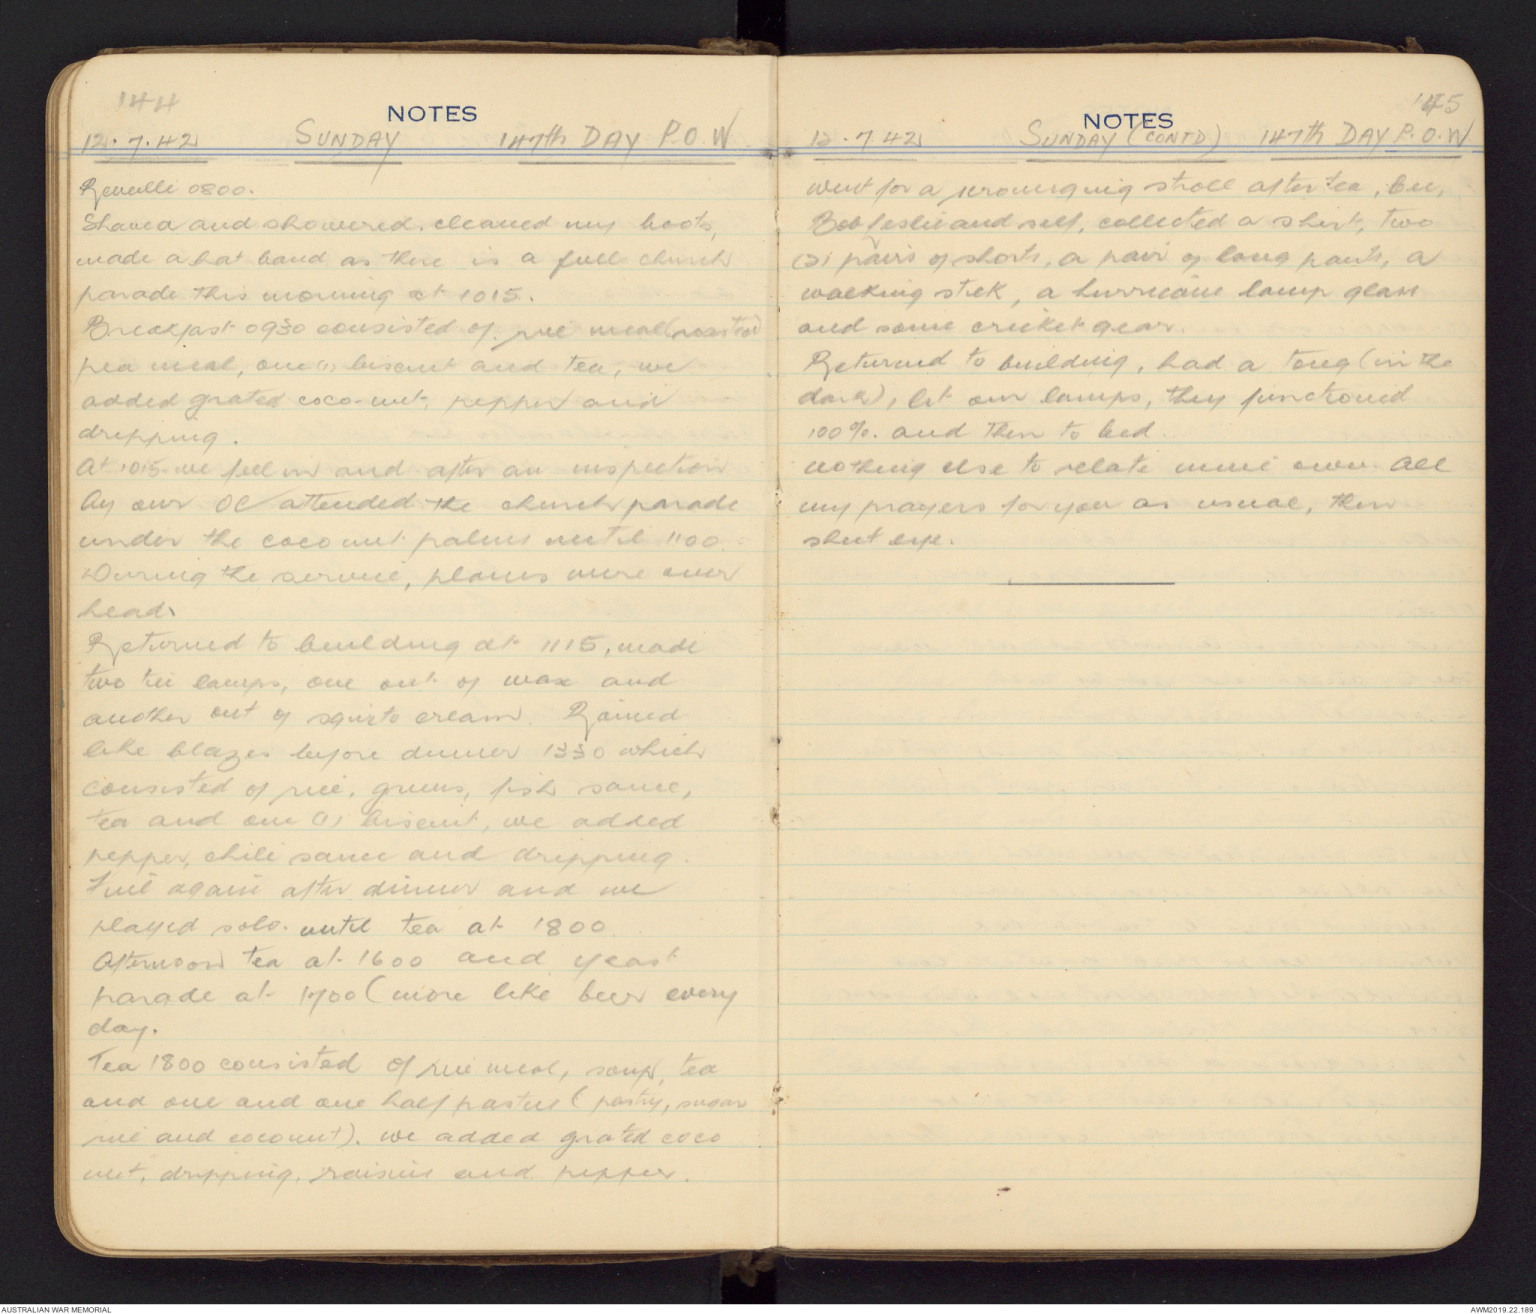 144
NOTES
12.7.42 SUNDAY 147th DAY P.O.W
Reveille 0800.
Shaved and showered, cleaned my boots,
made a hat band as there is a full church
parade this morning at 1015.
Breakfast 0930 consisted of rice meal (roasted)
pea meal, one (1) biscuit and tea, we
added grated coco-nut, pepper and
dripping.
At 1015 we fell in and after an inspection
by our OC attended the church parade
under the coco nut palms until 1100.
During the service, planes were over
head.
Returned to building at 1115, made
two tin lamps, one out of wax and
another out of squirts cream. Rained
like blazes before dinner 1330 which
consisted of rice, greens, fish sauce,
tea and one (1) biscuit, we added
pepper, chili sauce and dripping.
Fine again after dinner and we
played solo. until tea at 1800.
Afternoon tea at 1600 and yeast
parade at 1700 (more like beer every
day.
Tea 1800 consisted of rice meal, soup, tea
and one and one half pasties (pastry, sugar
rice and coconut). we added grated coco
nut, dripping, raisins and pepper.
145
NOTES
12.7.42 SUNDAY (CONTD) 147th DAY P.O.W
went for a scrounging stroll after tea,
Bob Leslie and self, collected a shirt, two
(2) pairs of shorts, a pair of long pants, a
walking stick, a hurricane lamp glass
and some cricket gear.
Returned to building, had a tong (in the
dark), lit our lamps, they functioned
100%. and then to bed.
nothing else to relate mine own. All
my prayers for you as usual, then
shut eye.
AUSTRALIAN WAR MEMORIAL
AWM2019.22.189